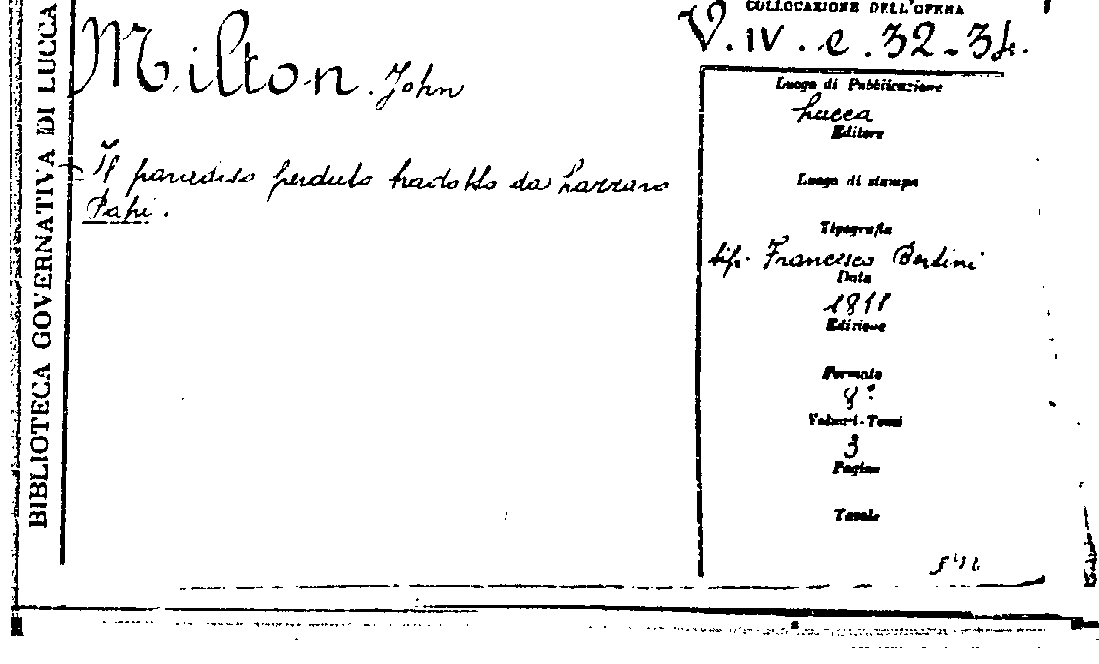 BIBLIOTECA GOVERNATIVA DI LUCCA
COLLOCAZIONE DELL'OPERA
V. IV. e. 32-34.
Milton. John
Il paradiso perduto tradotto da Lazzaro
Papi.
Luogo di Pubblicazione
Lucca
Editore
Luogo di stampa
Tipografia
tip. Francesco Bertini
Data
1811
Edizione
Formato
8º
Volumi-Tomi
3
Pagine
Tavole